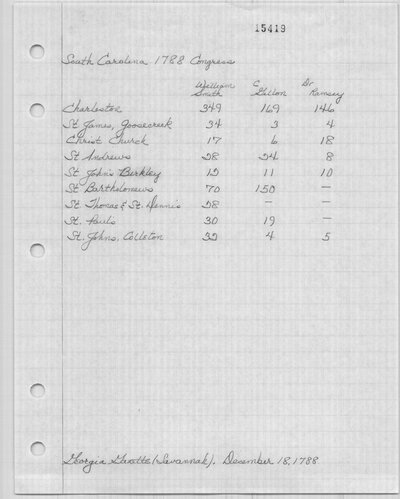 15419
South Carolina 1788 Congress
William Smith E Gillon Dr Ramsey
Charleston 349 169 146
St James, Goosecreek 34 3 4
Christ Church 17 6 18
St Andrews 58 54 8
St John's Berkley 15 11 10
St Bartholomews 70 150 —
St Thomas & St. Dennis 58 — —
St. Pauls 30 19 —
St. Johns, Colleton 35 4 5
Georgia Gazette (Savannah), December 18, 1788